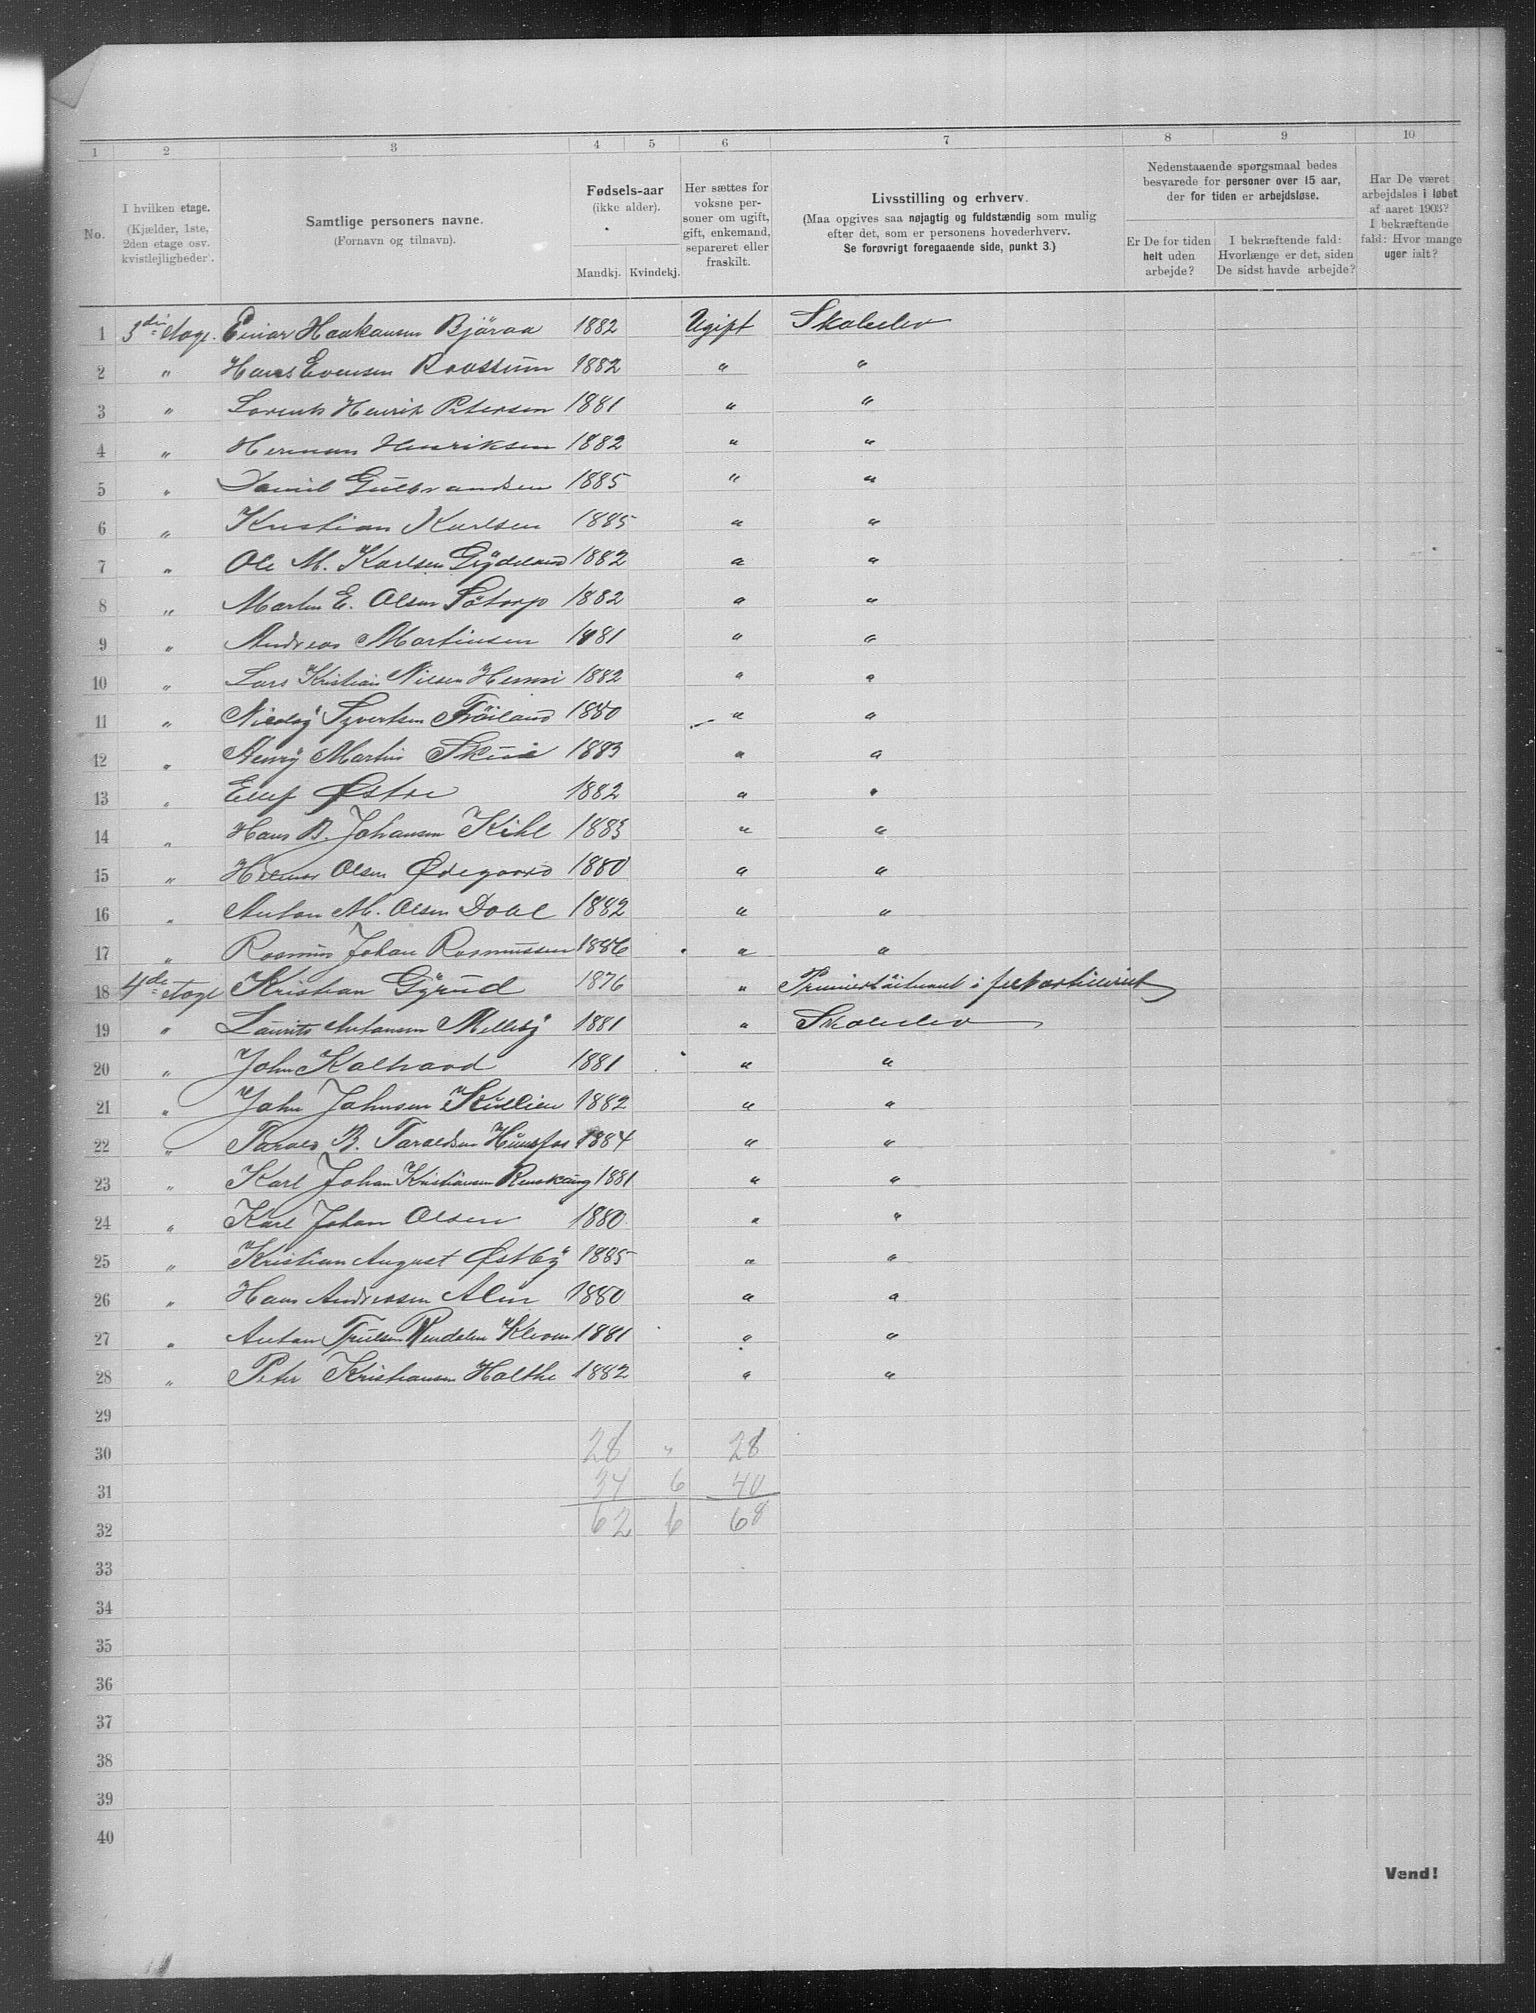 1 2 3 4 5 6 7 8 9 10
No.
I hvilken etage.
(Kjælder, 1ste,
2den etage osv.
kvistlejligheder.)
Samtlige personers navne.
(Fornavn og tilnavn).
Fødsels-aar
(ikke alder).
Mandkj. Kvindekj.
Her sættes for
voksne per-
soner om ugift,
gift, enkemand,
separeret eller
fraskilt.
Livsstilling og erhverv.
(Maa opgives saa nøjagtig og fuldstændig som mulig
efter det, som er personens hovederhverv.
Se forøvrigt foregaaende side, punkt 3.)
Nedenstaaende spørgsmaal bedes
besvarede for personer over 15 aar,
der for tiden er arbejdsløse.
Er De for tiden
helt uden
arbejde?
I bekræftende fald:
Hvorlænge er det, siden
De sidst havde arbejde?
Har De været
arbejdsløs i løbet
af aaret 1903?
I bekræftende
fald: Hvor mange
uger ialt?
1 3die etage. Einar Haakansen Björaa 1882 Ugift Skoleelev
2 " Hans Evensen Braastum 1882 " "
3 " Lorents Henrik Petersen 1881 " "
4 " Herman Henriksen 1882 " "
5 " Daniel Gulbrandsen 1885 " "
6 " Kristian Karlsen 1885 " "
7 " Ole M. Karlsen Gydeland 1882 " "
8 " Martin E. Olsen Sötorp 1882 " "
9 " Andreas Martinsen 1881 " "
10 " Lars Kristian Nilsen 1882 " "
11 " Nicolay Syvertsen Fröiland 1880 " "
12 " Henry Martin Skuie 1883 " "
13 " Ellef Østre 1882 " "
14 " Hans B. Johansen Kihl 1883 " "
15 " Hilmar Olsen Ødegaard 1880 " "
16 " Anton M. Olsen Dahl 1882 " "
17 " Rasmus Johan Rasmussen 1886 " "
18 4de etage Kristian Gyrud 1876 " Premierløitnant i feltartilleriet
19 " Laurits Antonsen Melleby 1881 " Skoleelev
20 " John Kolhaad 1881 " "
21 " John Johnsen Kullien 1882 " "
22 " Tarald B. Taraldsen Hunsfos 1884 " "
23 " Karl Johan Kristiansen Renskaug 1881 " "
24 " Karl Johan Olsen 1880 " "
25 " Kristian August Østby 1885 " "
26 " Hans Andreasen Alm 1880 " "
27 " Anton Trulsen Rendalen Kleven 1881 " "
28 " Peter Kristiansen Holthe 1882 " "
29
30 28 " 28
31 34 6 40
32 62 6 68
33
34
35
36
37
38
39
40
Vend!